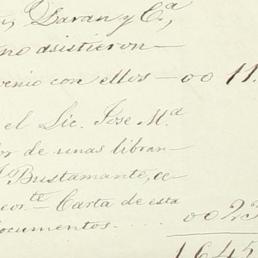 Daran y C.ª,
no asistieron
venio con ellos — 00 11.
el Lic. Jose M.ª
dor de unas libran-
Bustamante, ec-
cor.te Carta de esta
documentos....
00 23
1645